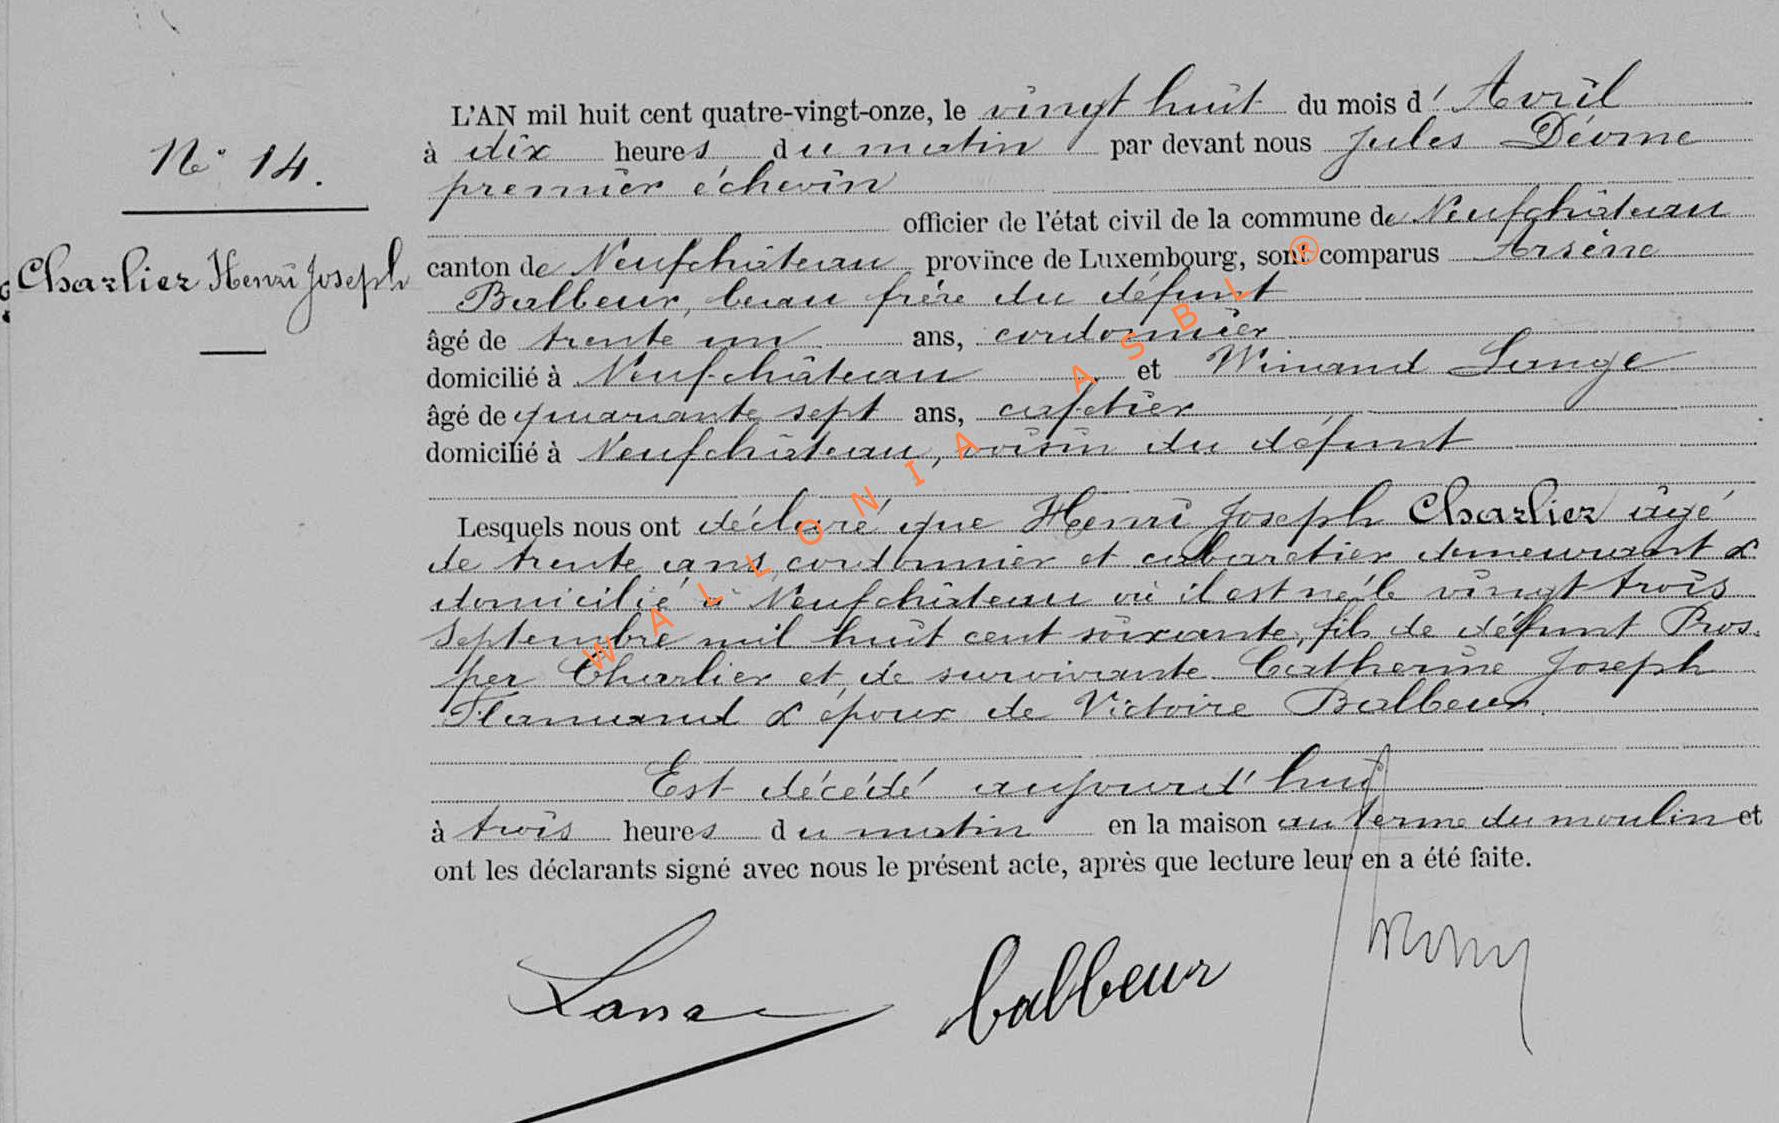 N° 14.
Charlier Henri Joseph
L'AN mil huit cent quatre-vingt-onze, le vingt huit du mois d'Avril
à dix heures du matin par devant nous Jules Déome
premier échevin
officier de l'état civil de la commune de Neufchâteau
canton de Neufchâteau, province de Luxembourg, sont comparus Arsène
Balbeur, beau frère du défunt
âgé de trente un ans, cordonnier
domicilié à Neufchâteau et Winand Lange
âgé de quarante sept ans, cafetier
domicilié à Neufchâteau, voisin du défunt
Lesquels nous ont déclaré que Henri Joseph Charlier âgé
de trente ans, cordonnier et cabaretier demeurant &
domicilié à Neufchâteau où il est né le vingt trois
Septembre mil huit cent soixante, fils de défunt Pros-
per Charlier et de survivante Catherine Joseph
Flamand & époux de Victoire Balbeur.
Est décédé aujourd'hui
à trois heures du matin en la maison au terme du moulin et
ont les déclarants signé avec nous le présent acte, après que lecture leur en a été faite.
Lange balbeur
WALLONIA ASBL ®